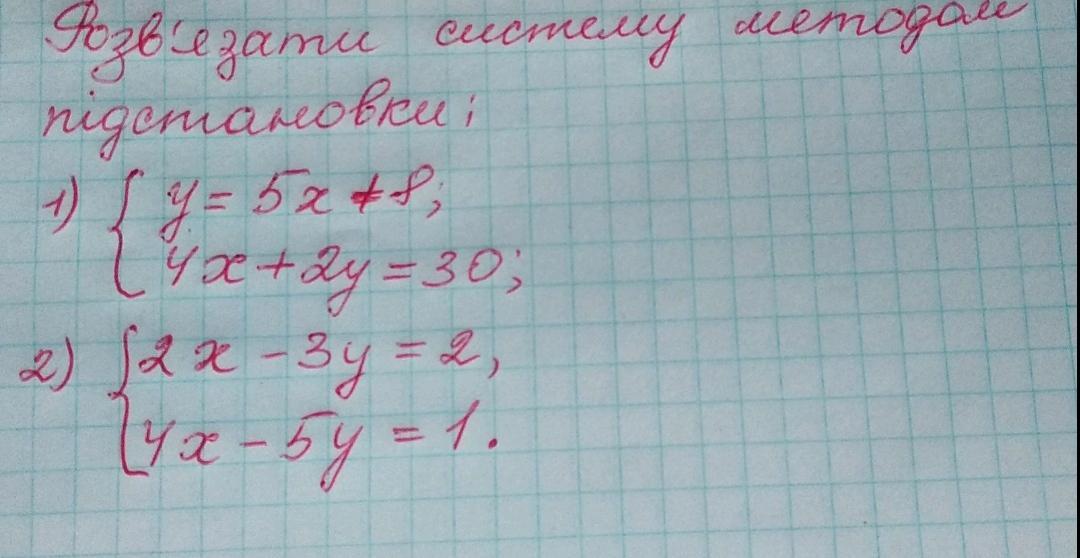 Розв'язати систему методом
підстановки:
1) { y = 5x + 8;
4x + 2y = 30;
2) { 2x - 3y = 2,
4x - 5y = 1.